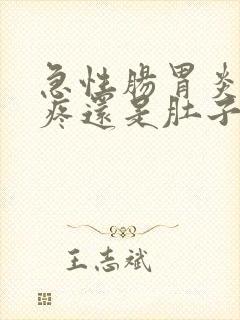 急性腸胃炎
疼還是肚子
王志斌